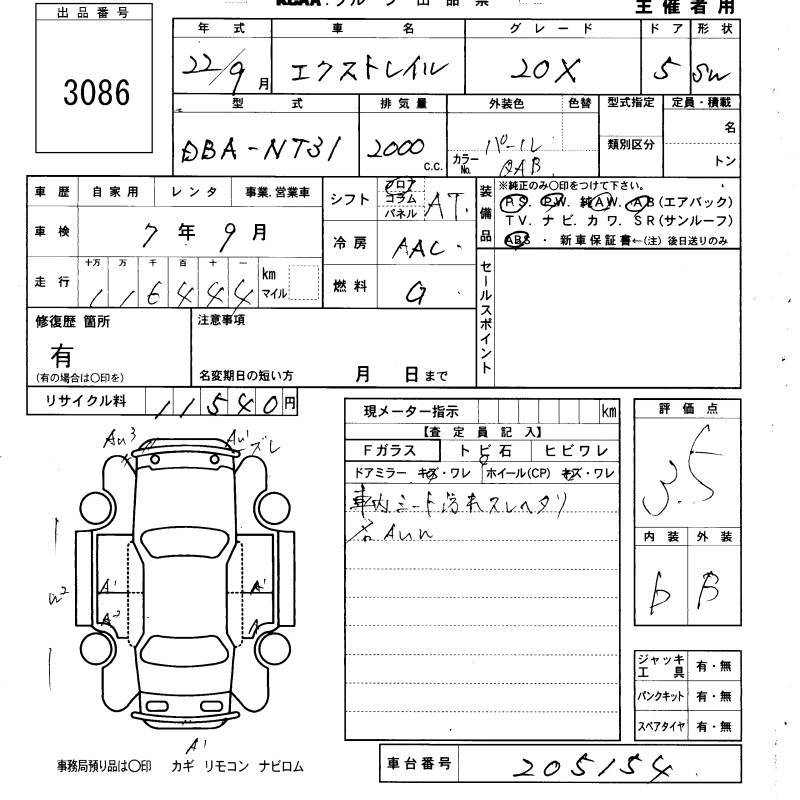 主催者用
出品番号
3086
年式 車名 グレード ドア 形状
22/9月 エクストレイル 20X 5 SW
型式 排気量 外装色 色替 型式指定 定員・積載
DBA-NT31 2000 c.c. パール カラーNo. QAB 類別区分 名 トン
車歴 自家用 レンタ 事業.営業車
車検 7年9月
走行 十万 万 千 百 十 一 km マイル
116444
シフト フロア コラム パネル AT.
冷房 AAC
燃料 G
装備品 ※純正のみ○印をつけて下さい。
P.S. P.W. 純A.W. A.B(エアバック)
T.V. ナビ. カワ. S.R(サンルーフ)
ABS ・ 新車保証書←(注) 後日送りのみ
セールスポイント
修復歴 箇所
有
(有の場合は○印を)
注意事項
名変期日の短い方 月 日まで
リサイクル料 11540円
現メーター指示 km
【査定員記入】
Fガラス トビ石 ヒビワレ
ドアミラー キズ・ワレ ホイール(CP) キズ・ワレ
車内シート汚れスレヘタリ
A1 A2 A1 A A1
評価点
3.5
内装 外装
b B
ジャッキ工具 有・無
パンクキット 有・無
スペアタイヤ 有・無
事務局預り品は○印 カギ リモコン ナビロム
車台番号 205154